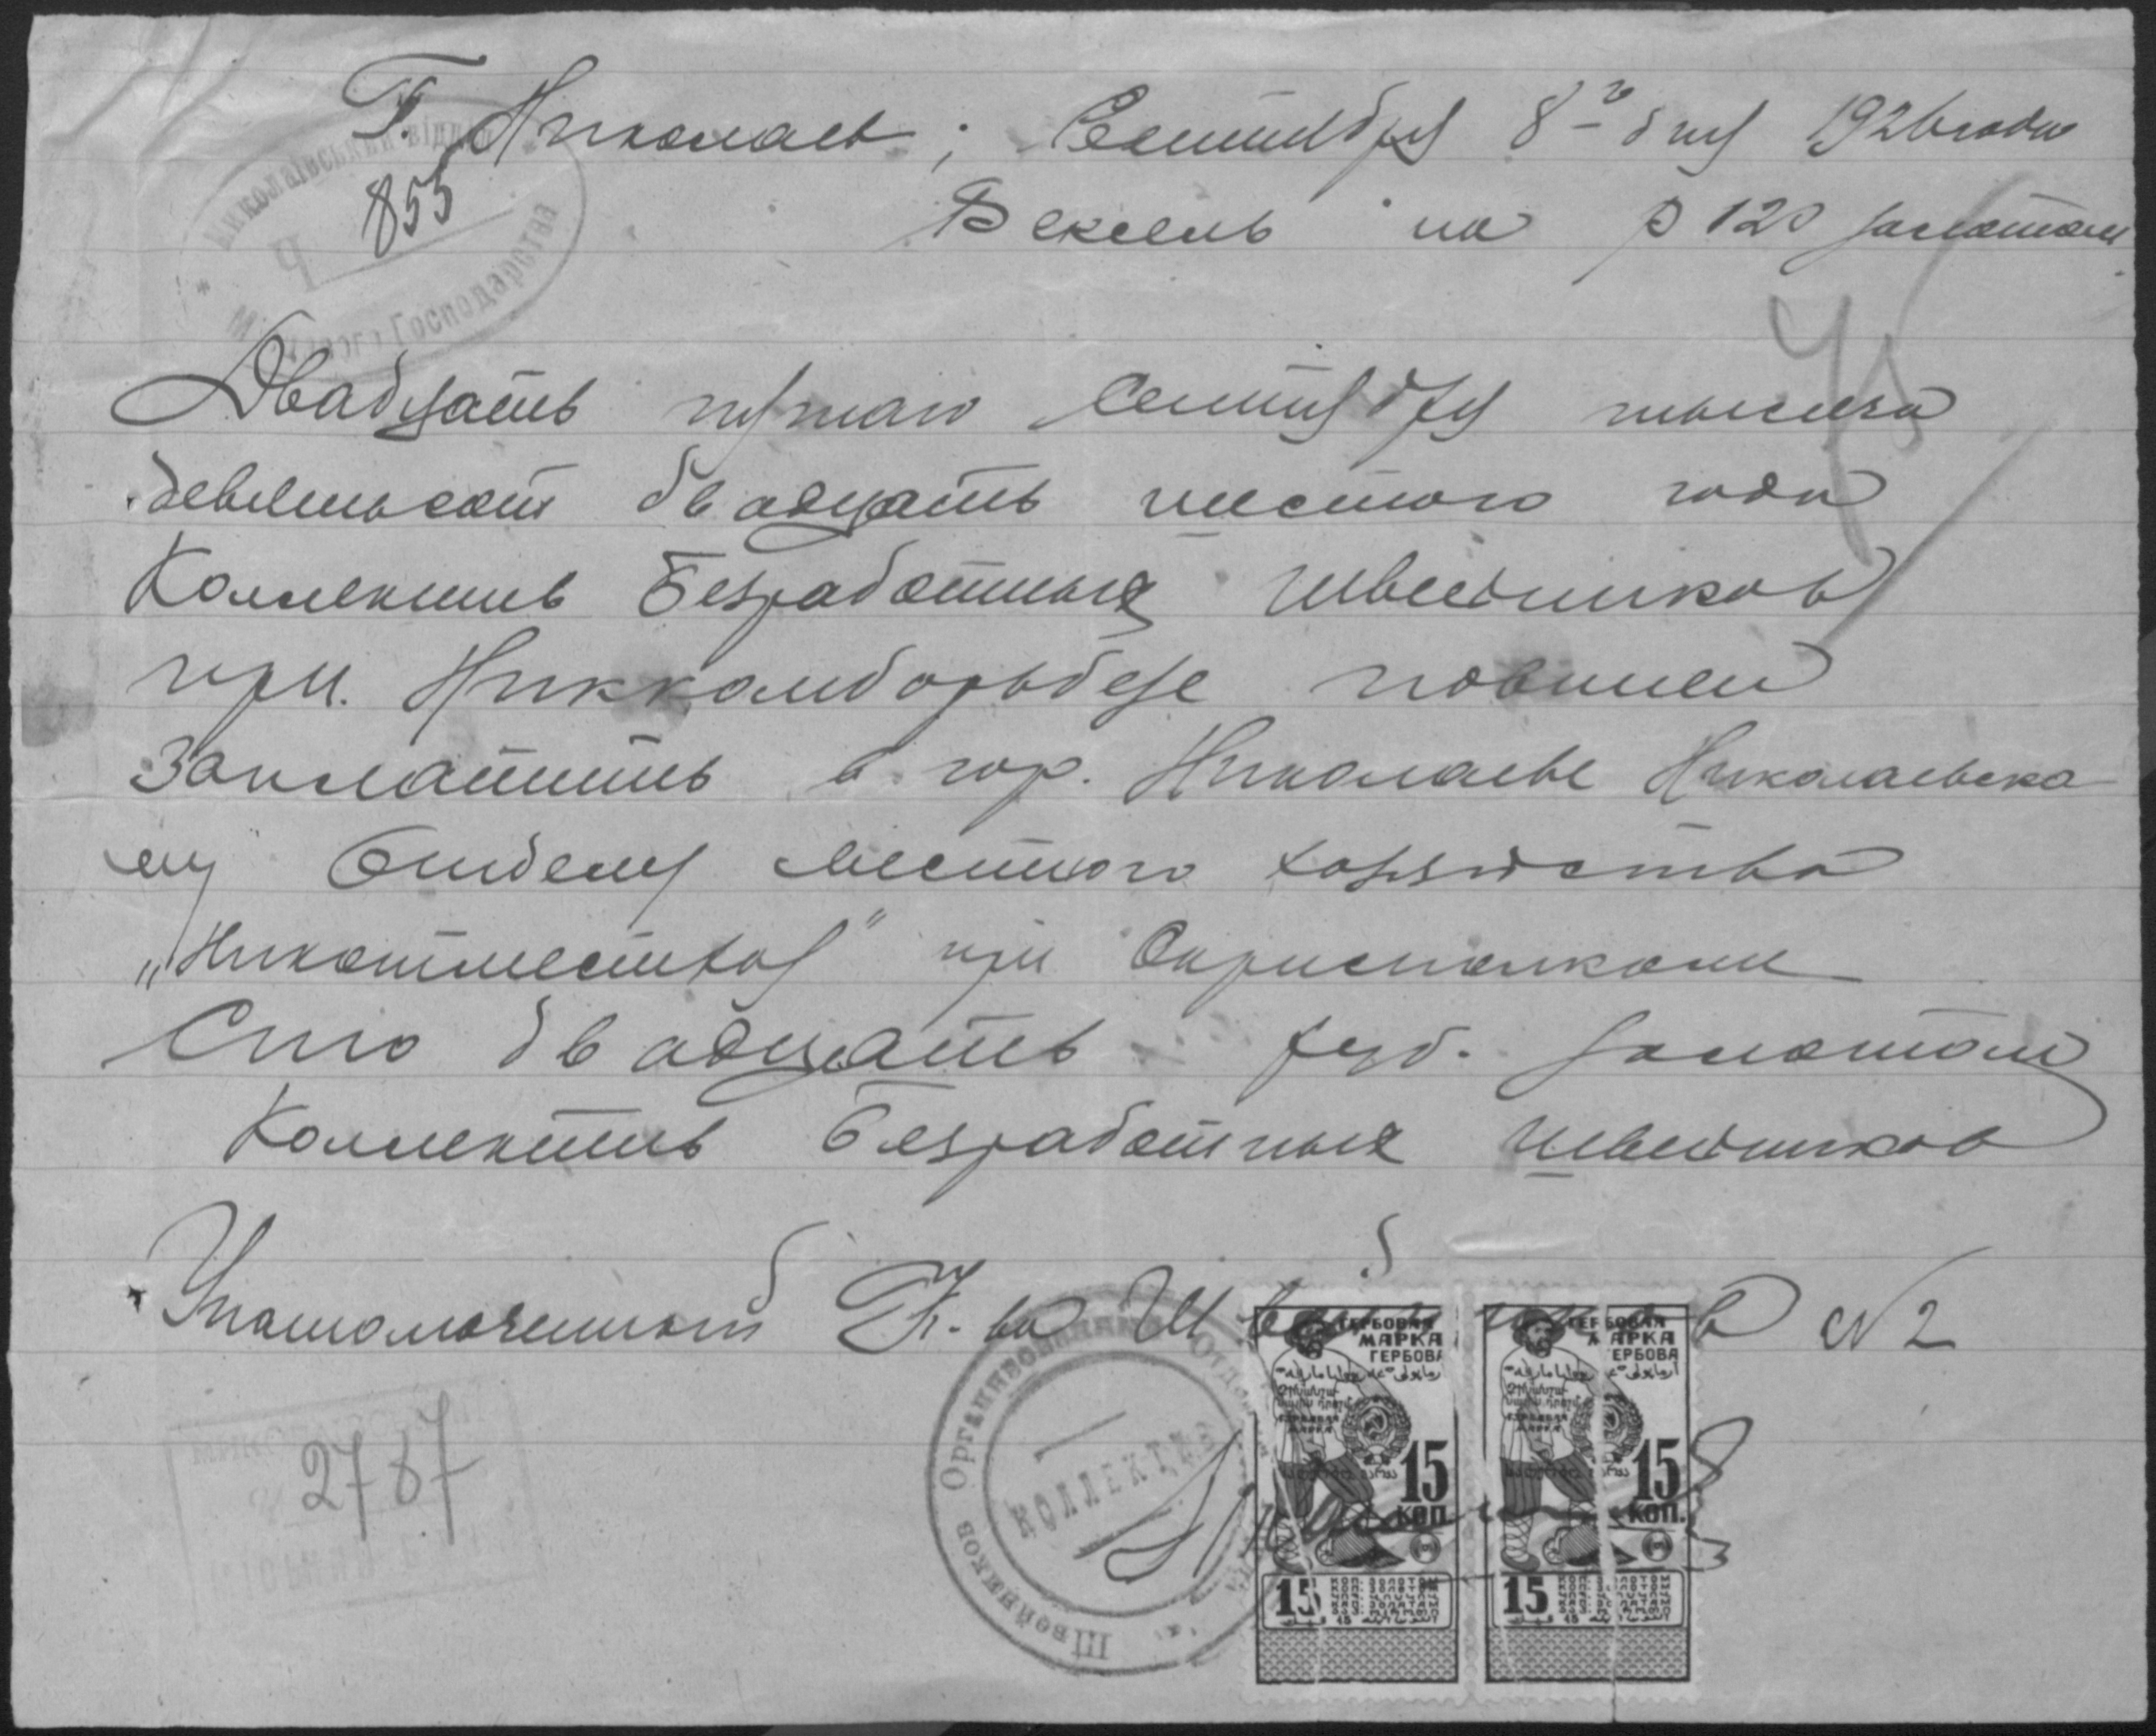 Г. Николаев; Сентября 8го дня 1926 года
Миколаївський відділ
855
Місцевого Господарства
Вексель на р 120 золотом
Двадцать пятаго Сентября тысяча
девятьсот двадцать шестого года
Коллектив Безработных Швейников
при Никкомборьбезе повинен
Заплатить в гор. Николаеве Николаевско
му Отделу местного хозяйства
„Никотместхоз" при Окрисполкоме
Сто двадцать руб. золотом
Коллектив Безработных Швейников
Уполномоченный К-ва Швейников № 2
2787
Швейников Организованный Отдел
КОЛЛЕКТИВ
ГЕРБОВАЯ МАРКА ГЕРБОВА
15 КОП.
15
ГЕРБОВАЯ МАРКА ГЕРБОВА
15 КОП.
15